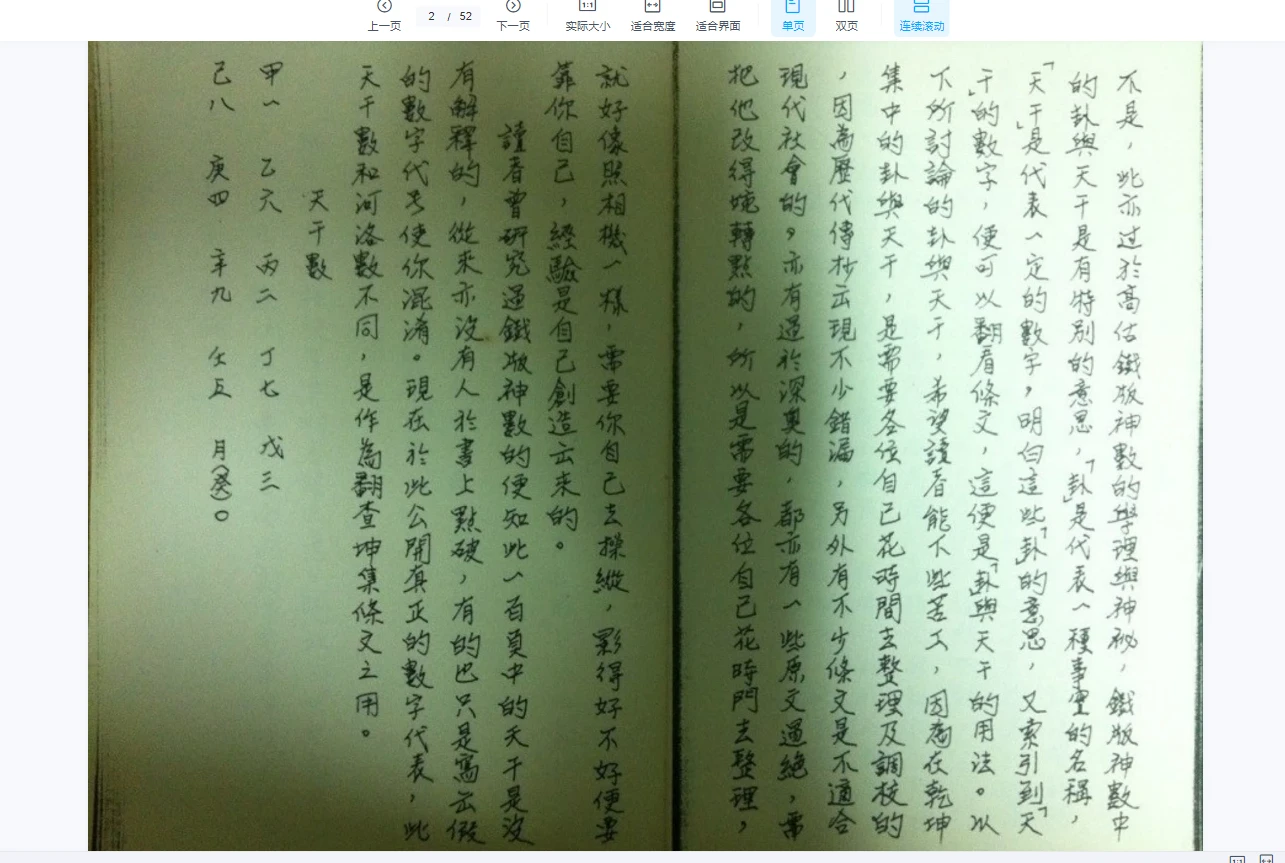 上一页
2 / 52
下一页
1:1
实际大小
适合宽度
适合界面
单页
双页
连续滚动
不是，此亦过於高估鐵版神數的學理與神祕，鐵版神數中
的卦與天干是有特別的意思，「卦」是代表一種事宜的名稱，
「天干」是代表一定的數字，明白這些「卦」的意思，又索引到「天
干」的數字，便可以翻看條文，這便是「卦」與天干的用法。以
下所討論的卦與天干，希望讀者能下些苦工，因為在乾坤
集中的卦與天干，是需要各位自己花時間去整理及調校的
，因為歷代傳抄云現不少錯漏，另外有不少條文是不適合
現代社會的，亦有過於深奧的，都亦有一些原文過絕，需
把他改得婉轉點的，所以是需要各位自己花時門去整理，
就好像照相機一樣，需要你自己去操縱，影得好不好便要
靠你自己，經驗是自己創造云來的。
讀者曾研究過鐵版神數的便知此一百頁中的天干是沒
有解釋的，從來亦沒有人於書上點破，有的巴只是寫云假
的數字代号使你混淆。現在於此公開真正的數字代表，此
天干數和河洛數不同，是作為翻查坤集條文之用。
天干數
甲一 乙六 丙二 丁七 戊三
己八 庚四 辛九 壬五 月(癸)〇
1:1